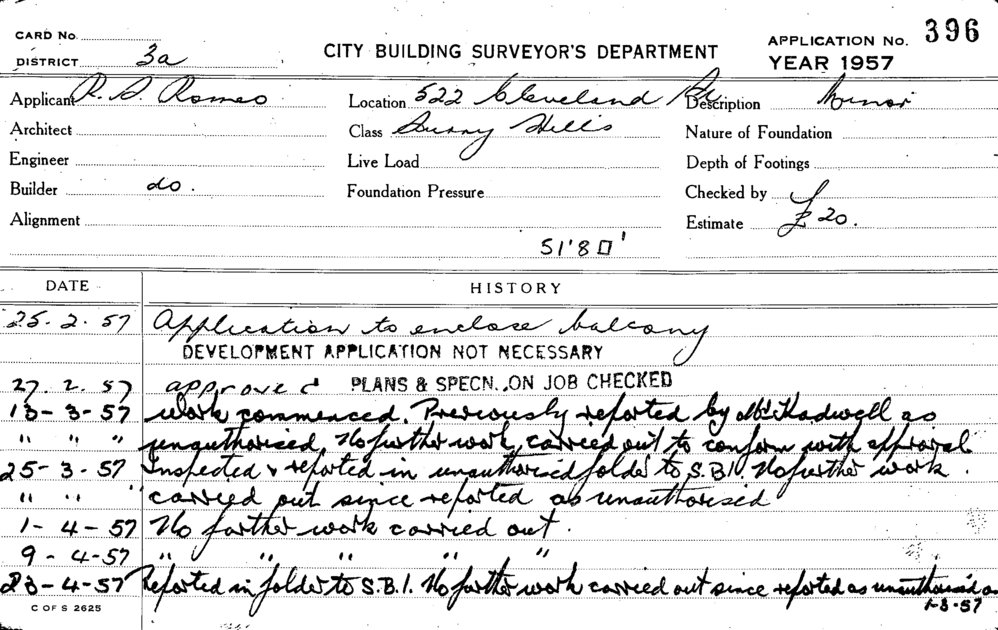 CARD No.
396
CITY BUILDING SURVEYOR'S DEPARTMENT
APPLICATION No.
DISTRICT 3a
YEAR 1957
Applicant R. D. Romeo
Location 522 Cleveland
Description Minor
Architect
Class Surry Hills
Nature of Foundation
Engineer
Live Load
Depth of Footings
Builder do.
Foundation Pressure
Checked by
Alignment
Estimate £20.
51'80'
DATE HISTORY
25. 2. 57 Application to enclose balcony
DEVELOPMENT APPLICATION NOT NECESSARY
27. 2. 57 approved PLANS & SPECN. ON JOB CHECKED
13-3-57 Work commenced. Previously reported by Mr. Kadwell as
" " " unauthorised. No further work carried out to conform with approval.
25-3-57 Inspected & reported in unauthorised folder to S.B.I. No further work.
" " " carried out since reported as unauthorised
1-4-57 No further work carried out.
9-4-57 " " " " "
23-4-57 Reported in folder to S.B.I. No further work carried out since reported as unauthorised on
C OF S 2625
1-3-57